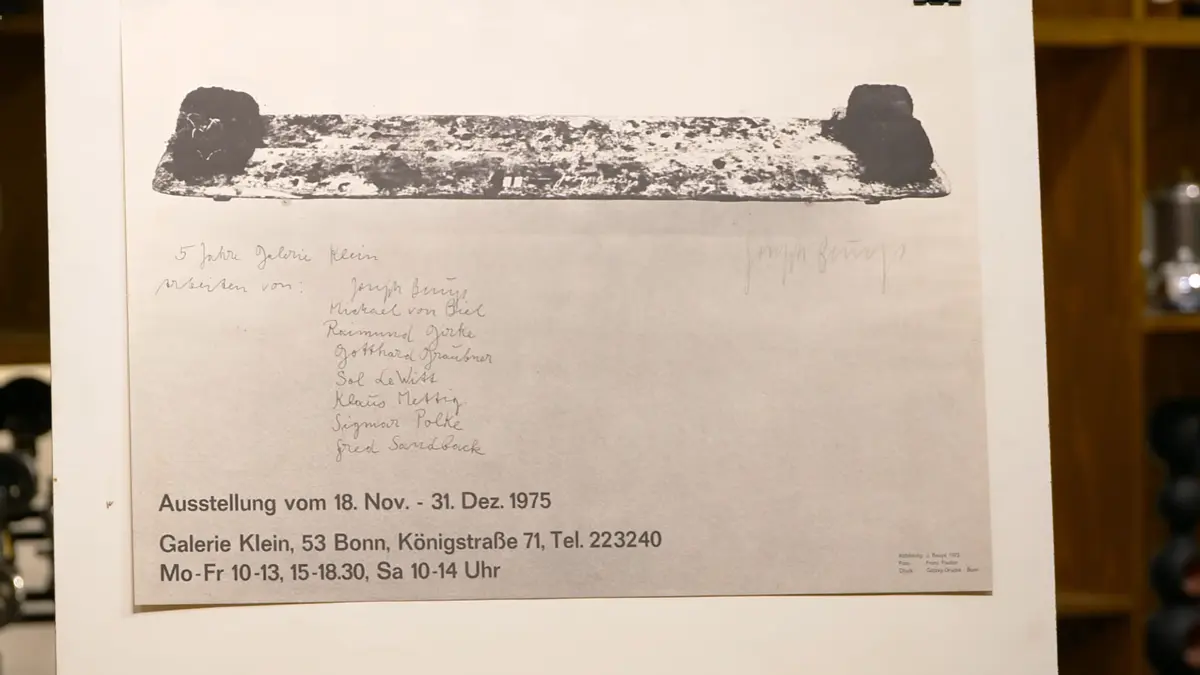 5 Jahre Galerie Klein
Arbeiten von: Joseph Beuys
Michael von Biel
Raimund Girke
Gotthard Graubner
Sol LeWitt
Klaus Mettig
Sigmar Polke
Fred Sandback
Joseph Beuys
Ausstellung vom 18. Nov. - 31. Dez. 1975
Galerie Klein, 53 Bonn, Königstraße 71, Tel. 223240
Mo-Fr 10-13, 15-18.30, Sa 10-14 Uhr